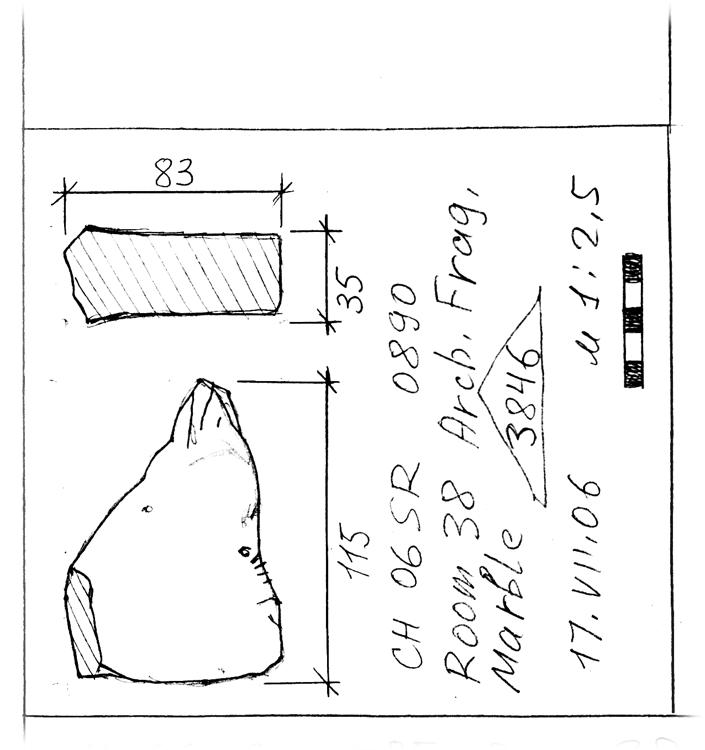 83
35
115
CH 06 SR 0890
Room 38 Arch. Frag.
Marble
3846
17.VII.06 M 1:2,5